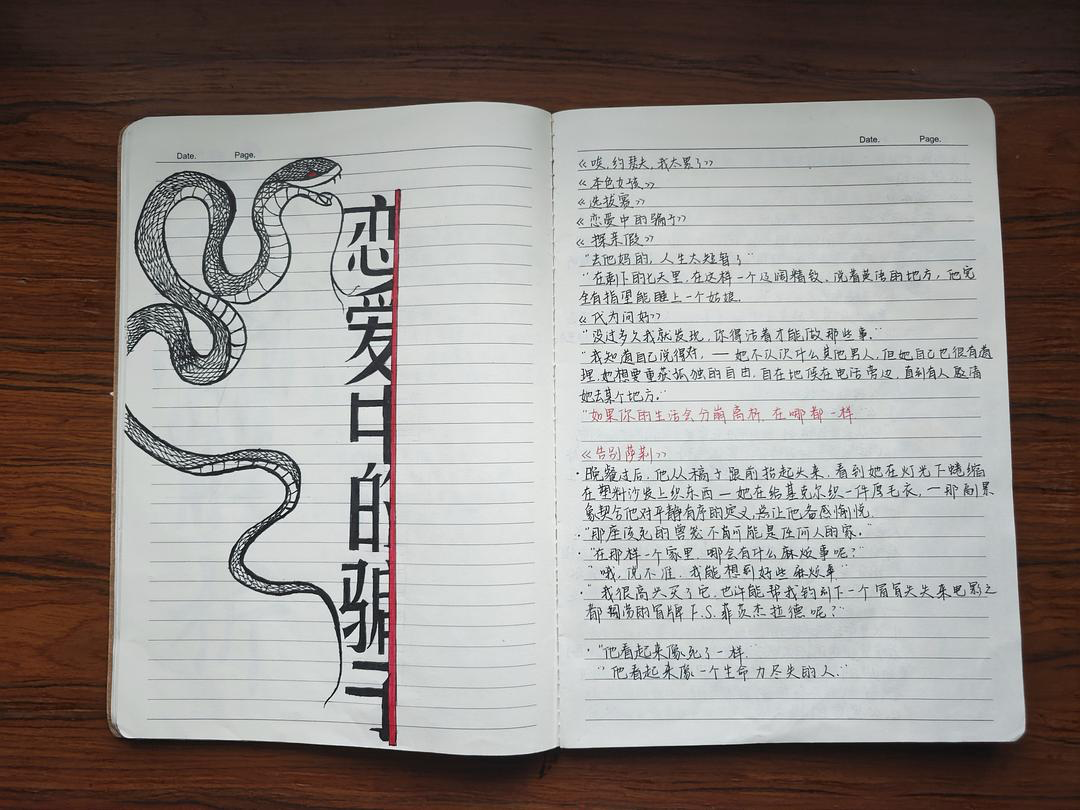 Date. Page.
恋爱中的骗子
Date. Page.
《唉,约瑟夫,我太累了》
《本色女孩》
《选拔赛》
《恋爱中的骗子》
《探亲假》
"去他妈的,人生太短暂了"
"在剩下的七天里,在这样一个辽阔精致、说着英语的地方,他完
全有指望能睡上一个姑娘。
《代为问好》
"没过多久我就发现,你得活着才能做那些事."
"我知道自己说得对,——她不认识什么其他男人,但她自己也很有道
理,她想要重获孤独的自由,自在地候在电话旁边,直到有人邀请
她去某个地方."
"如果你的生活会分崩离析,在哪都一样
《告别莎莉》
·晚餐过后,他从稿子跟前抬起头来,看到她在灯光下蜷缩
在塑料沙发上织东西——她在给基克尔织一件厚毛衣,——那副景
象契合他对平静有序的定义,总让他备感愉悦.
·"那座该死的兽笼不可能是任何人的家."
·"在那样一个家里,哪会有什么麻烦事呢?"
"哦,说不准.我能想到好些麻烦事"
·"我很高兴买了它,也许能帮我钓到下一个冒冒失失来电影之
都 的冒牌F.S.菲茨杰拉德呢?"
·"他看起来像死了一样."
"他看起来像一个生命力尽失的人."